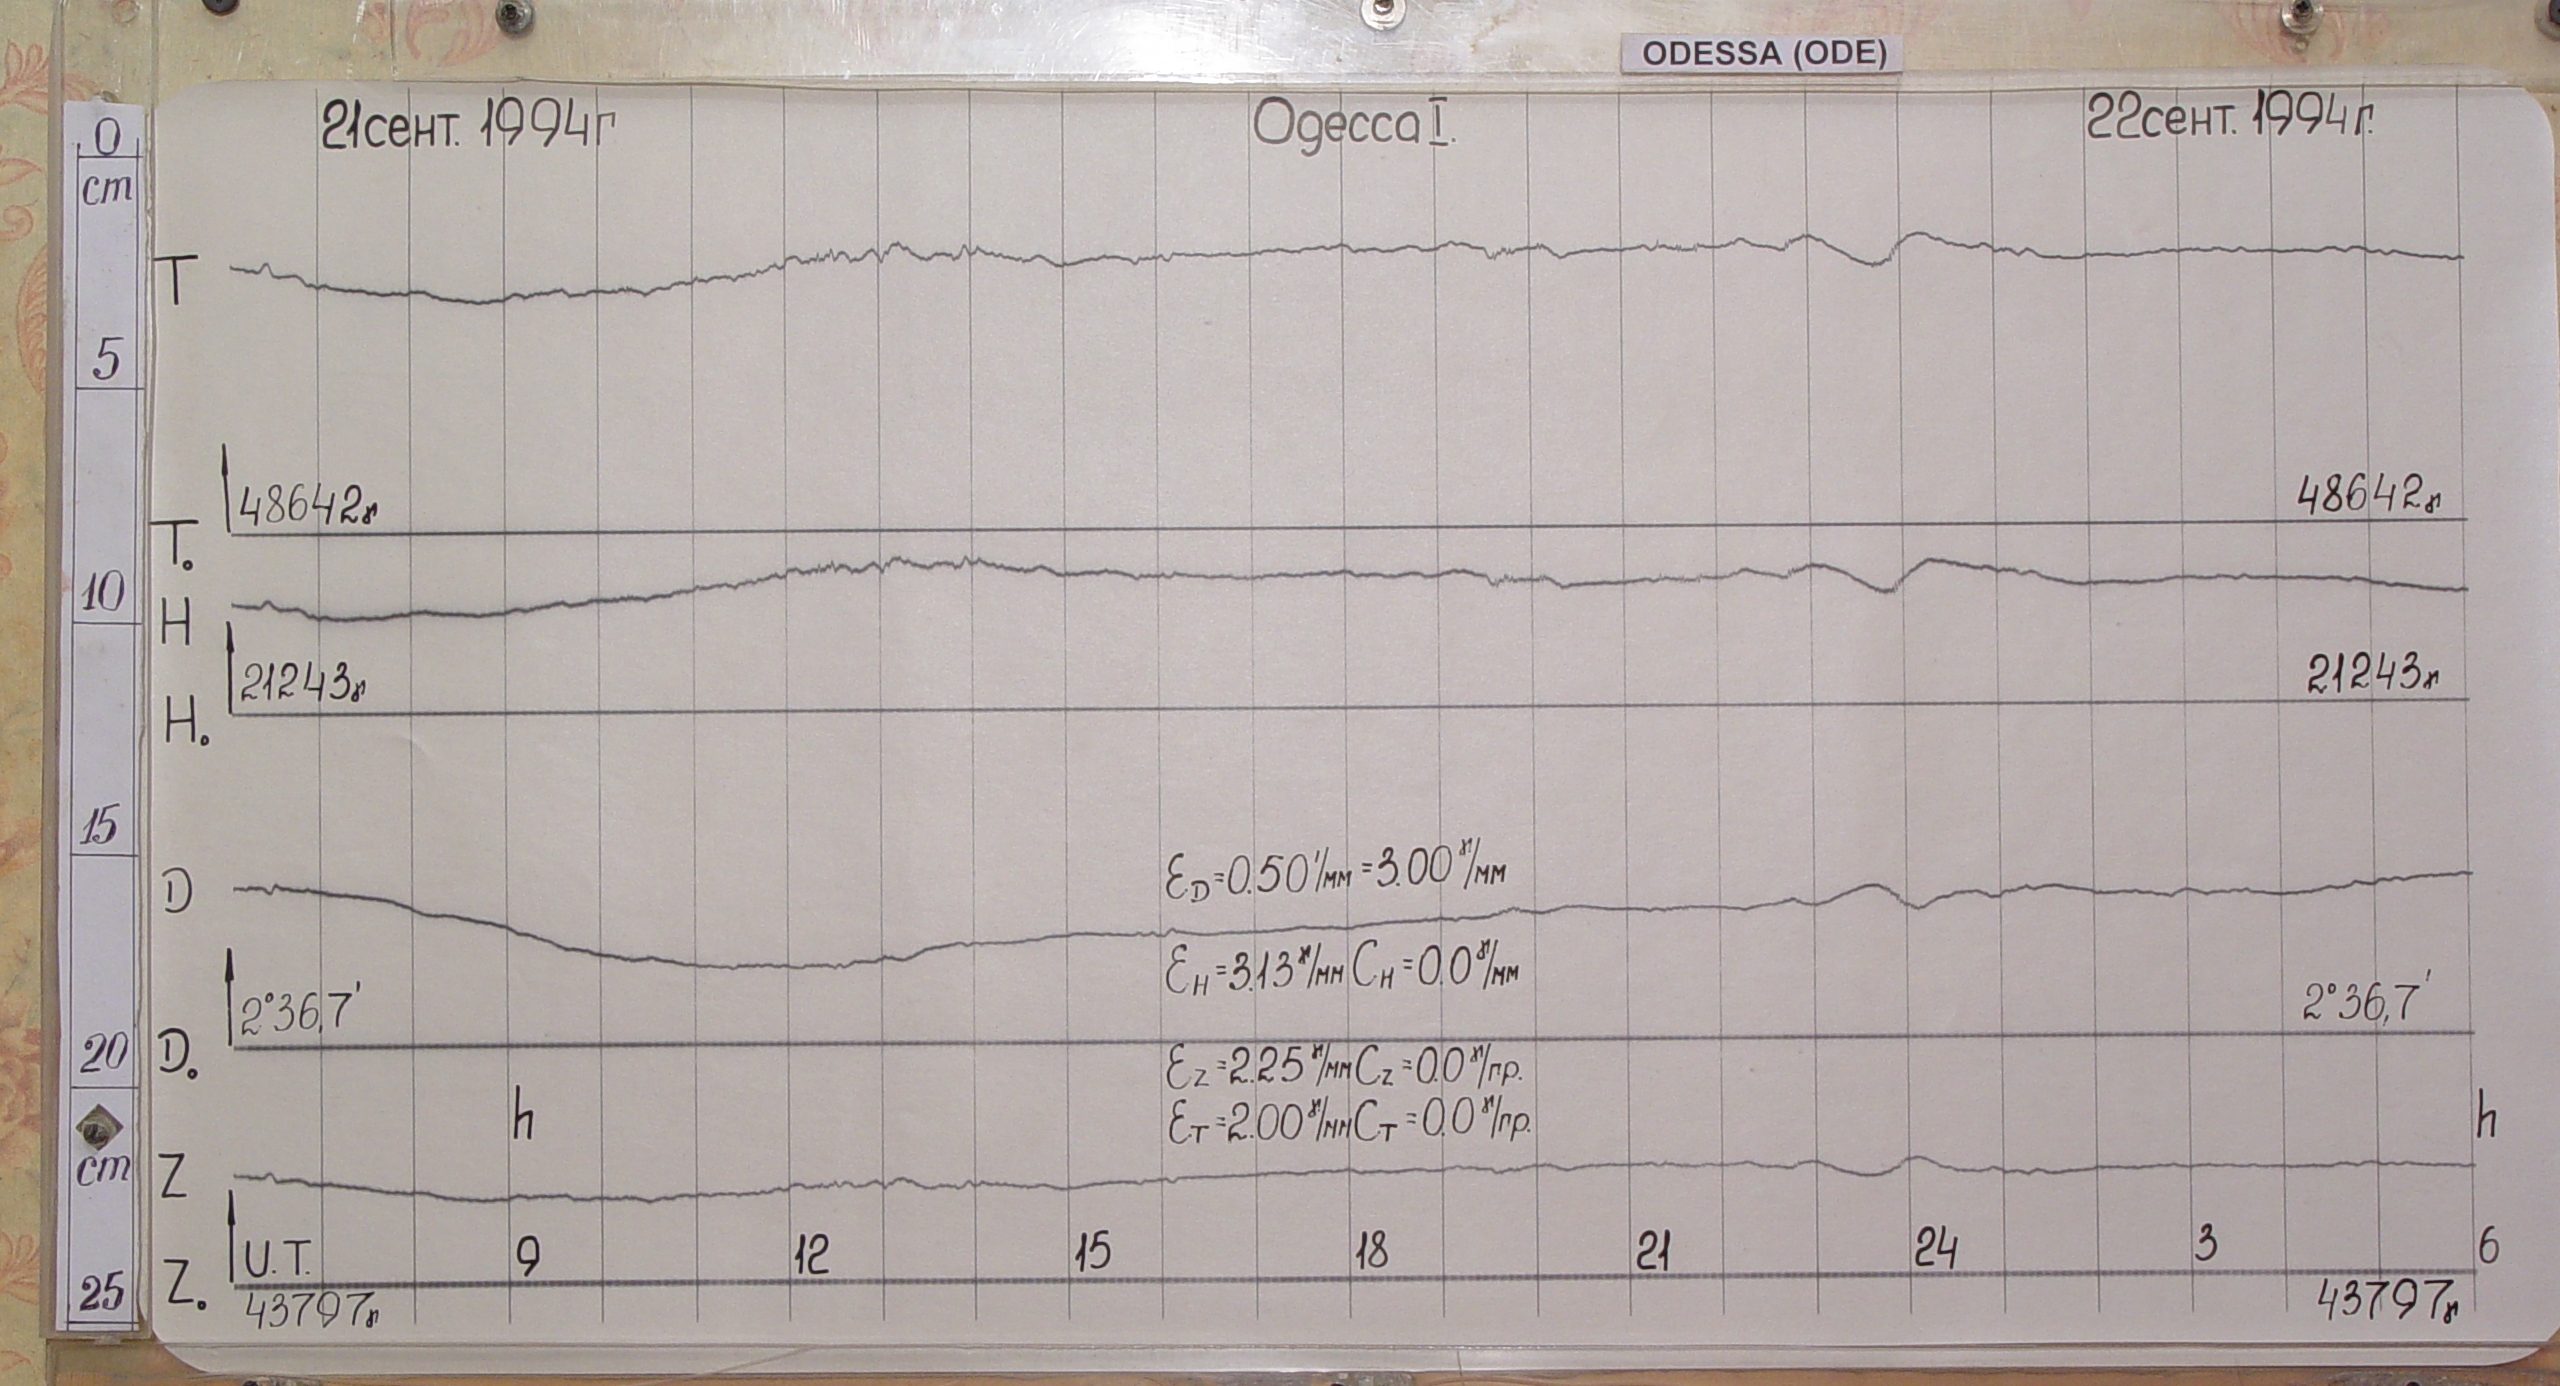 ODESSA (ODE)
21сент. 1994г
Одесса I.
22сент. 1994г.
0
cm
T
5
48642γ
48642γ
T.
10
H
21243γ
21243γ
H.
15
Ɛ_D=0.50'/мм=3.00γ/мм
D
Ɛ_H=3.13γ/мм C_H=0.0γ/мм
2°36,7'
2°36,7'
20
D.
Ɛ_Z=2.25γ/мм C_Z=0.0γ/пр.
h
h
Ɛ_T=2.00γ/мм C_T=0.0γ/пр.
cm
Z
U.T. 9 12 15 18 21 24 3 6
25
Z.
43797γ
43797γ